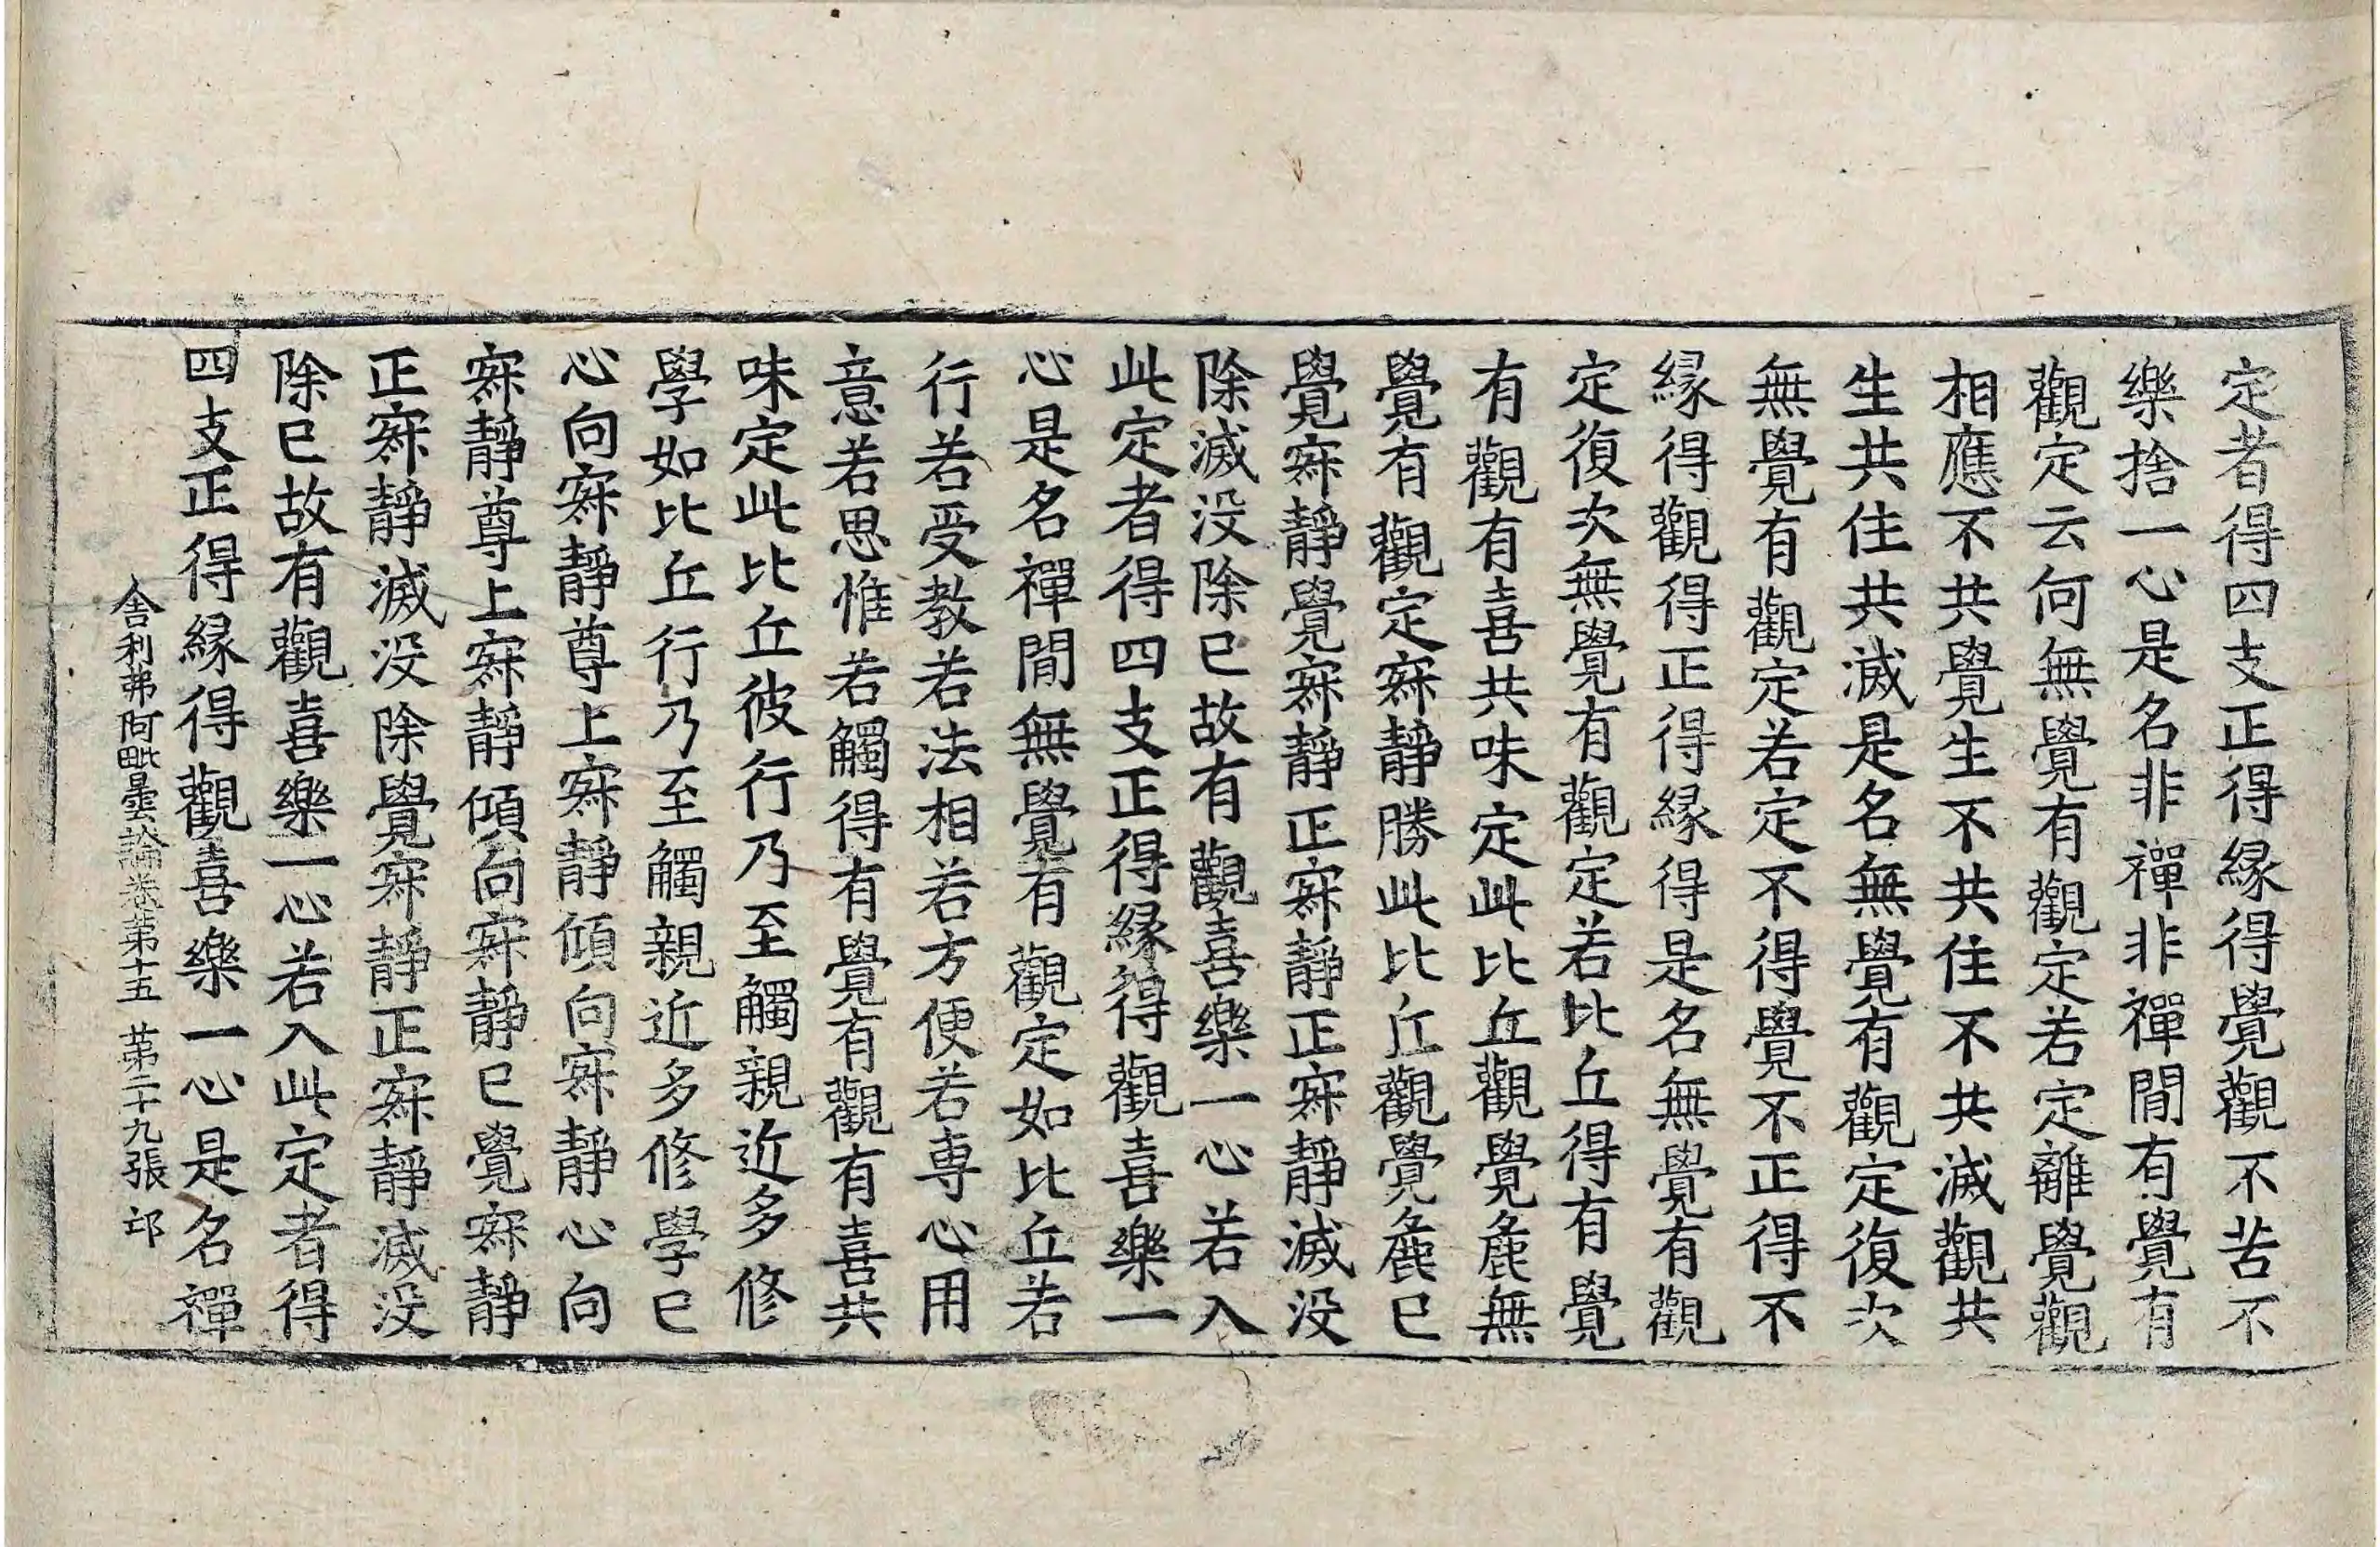 定者得四支正得縁得覺觀不苦不
樂捨一心是名非禪非禪間有覺有
觀定云何無覺有觀定若定離覺觀
相應不共覺生不共住不共滅觀共
生共住共滅是名無覺有觀定復次
無覺有觀定若定不得覺不正得不
縁得觀得正得縁得是名無覺有觀
定復次無覺有觀定若比丘得有覺
有觀有喜共味定此比丘觀覺麁無
覺有觀定寂靜勝此比丘觀覺麁已
覺寂靜覺寂靜正寂靜正寂靜滅没
除滅没除已故有觀喜樂一心若入
此定者得四支正得縁得觀喜樂一
心是名禪間無覺有觀定如比丘若
行若受教若法相若方便若専心用
意若思惟若觸得有覺有觀有喜共
味定此比丘彼行乃至觸親近多修
學如比丘行乃至觸親近多修學已
心向寂靜尊上寂靜傾向寂靜心向
寂靜尊上寂靜傾向寂靜已覺寂靜
正寂靜滅没除覺寂靜正寂靜滅没
除已故有觀喜樂一心若入此定者得
四支正得縁得觀喜樂一心是名禪
舍利弗阿毗曇論卷第十五 第二十九張 邙